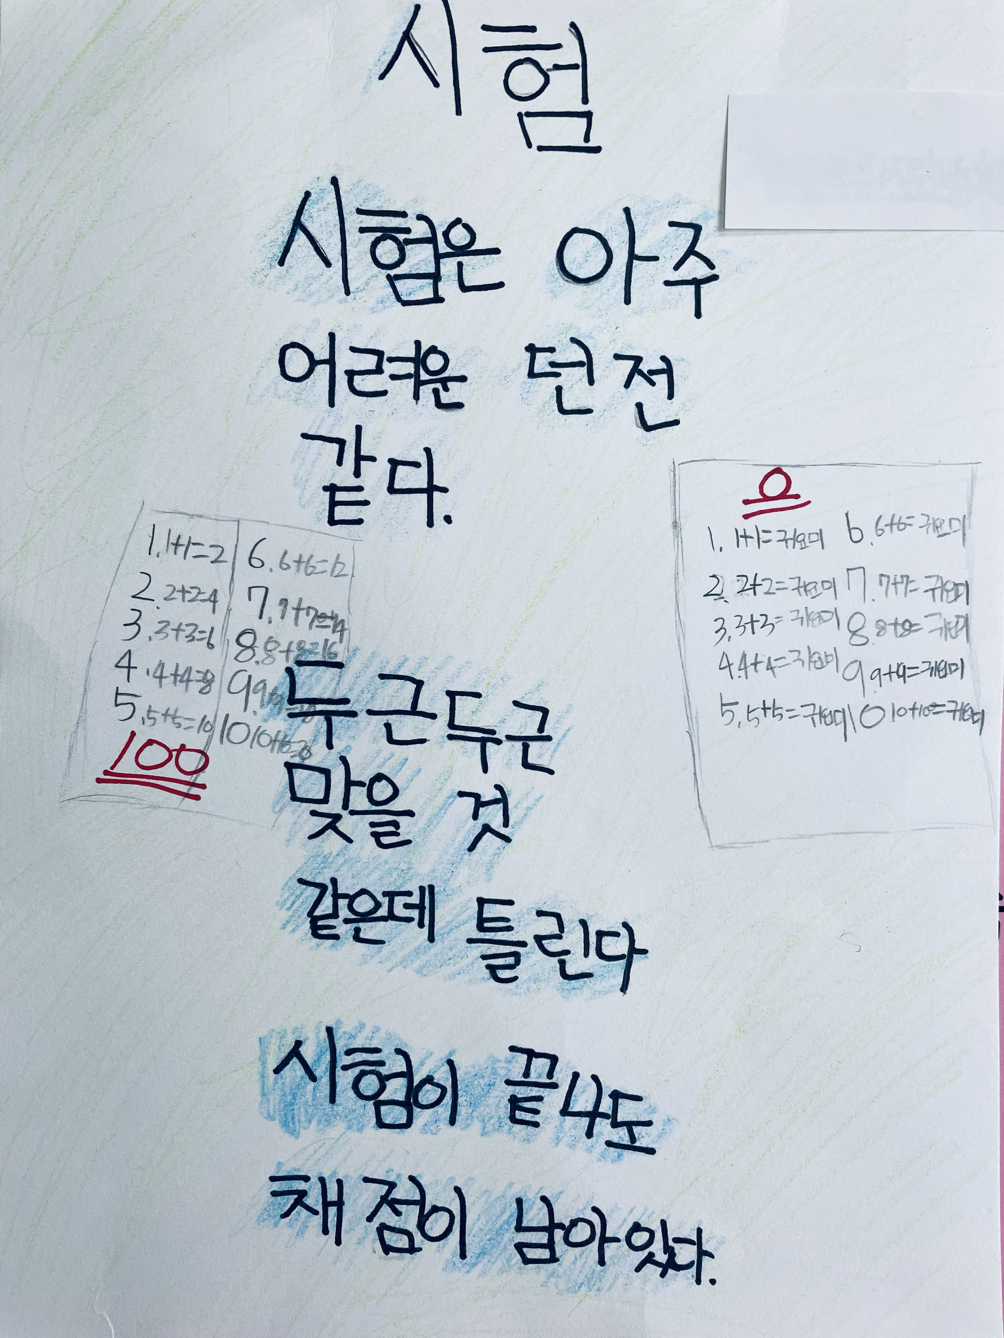 시험
시험은 아주
어려운 던전
같다.
1. 1+1=2
2. 2+2=4
3. 3+3=6
4. 4+4=8
5. 5+5=10
6. 6+6=12
7. 7+7=14
8. 8+8=16
9. 9+9=18
10 10+10=20
100
0
1. 1+1=귀요미
2. 2+2=귀요미
3. 3+3=귀요미
4. 4+4=귀요미
5. 5+5=귀요미
6. 6+6=귀요미
7. 7+7=귀요미
8. 8+8=귀요미
9. 9+9=귀요미
10 10+10=귀요미
두근두근
맞을 것
같은데 틀린다
시험이 끝나도
채점이 남아있다.